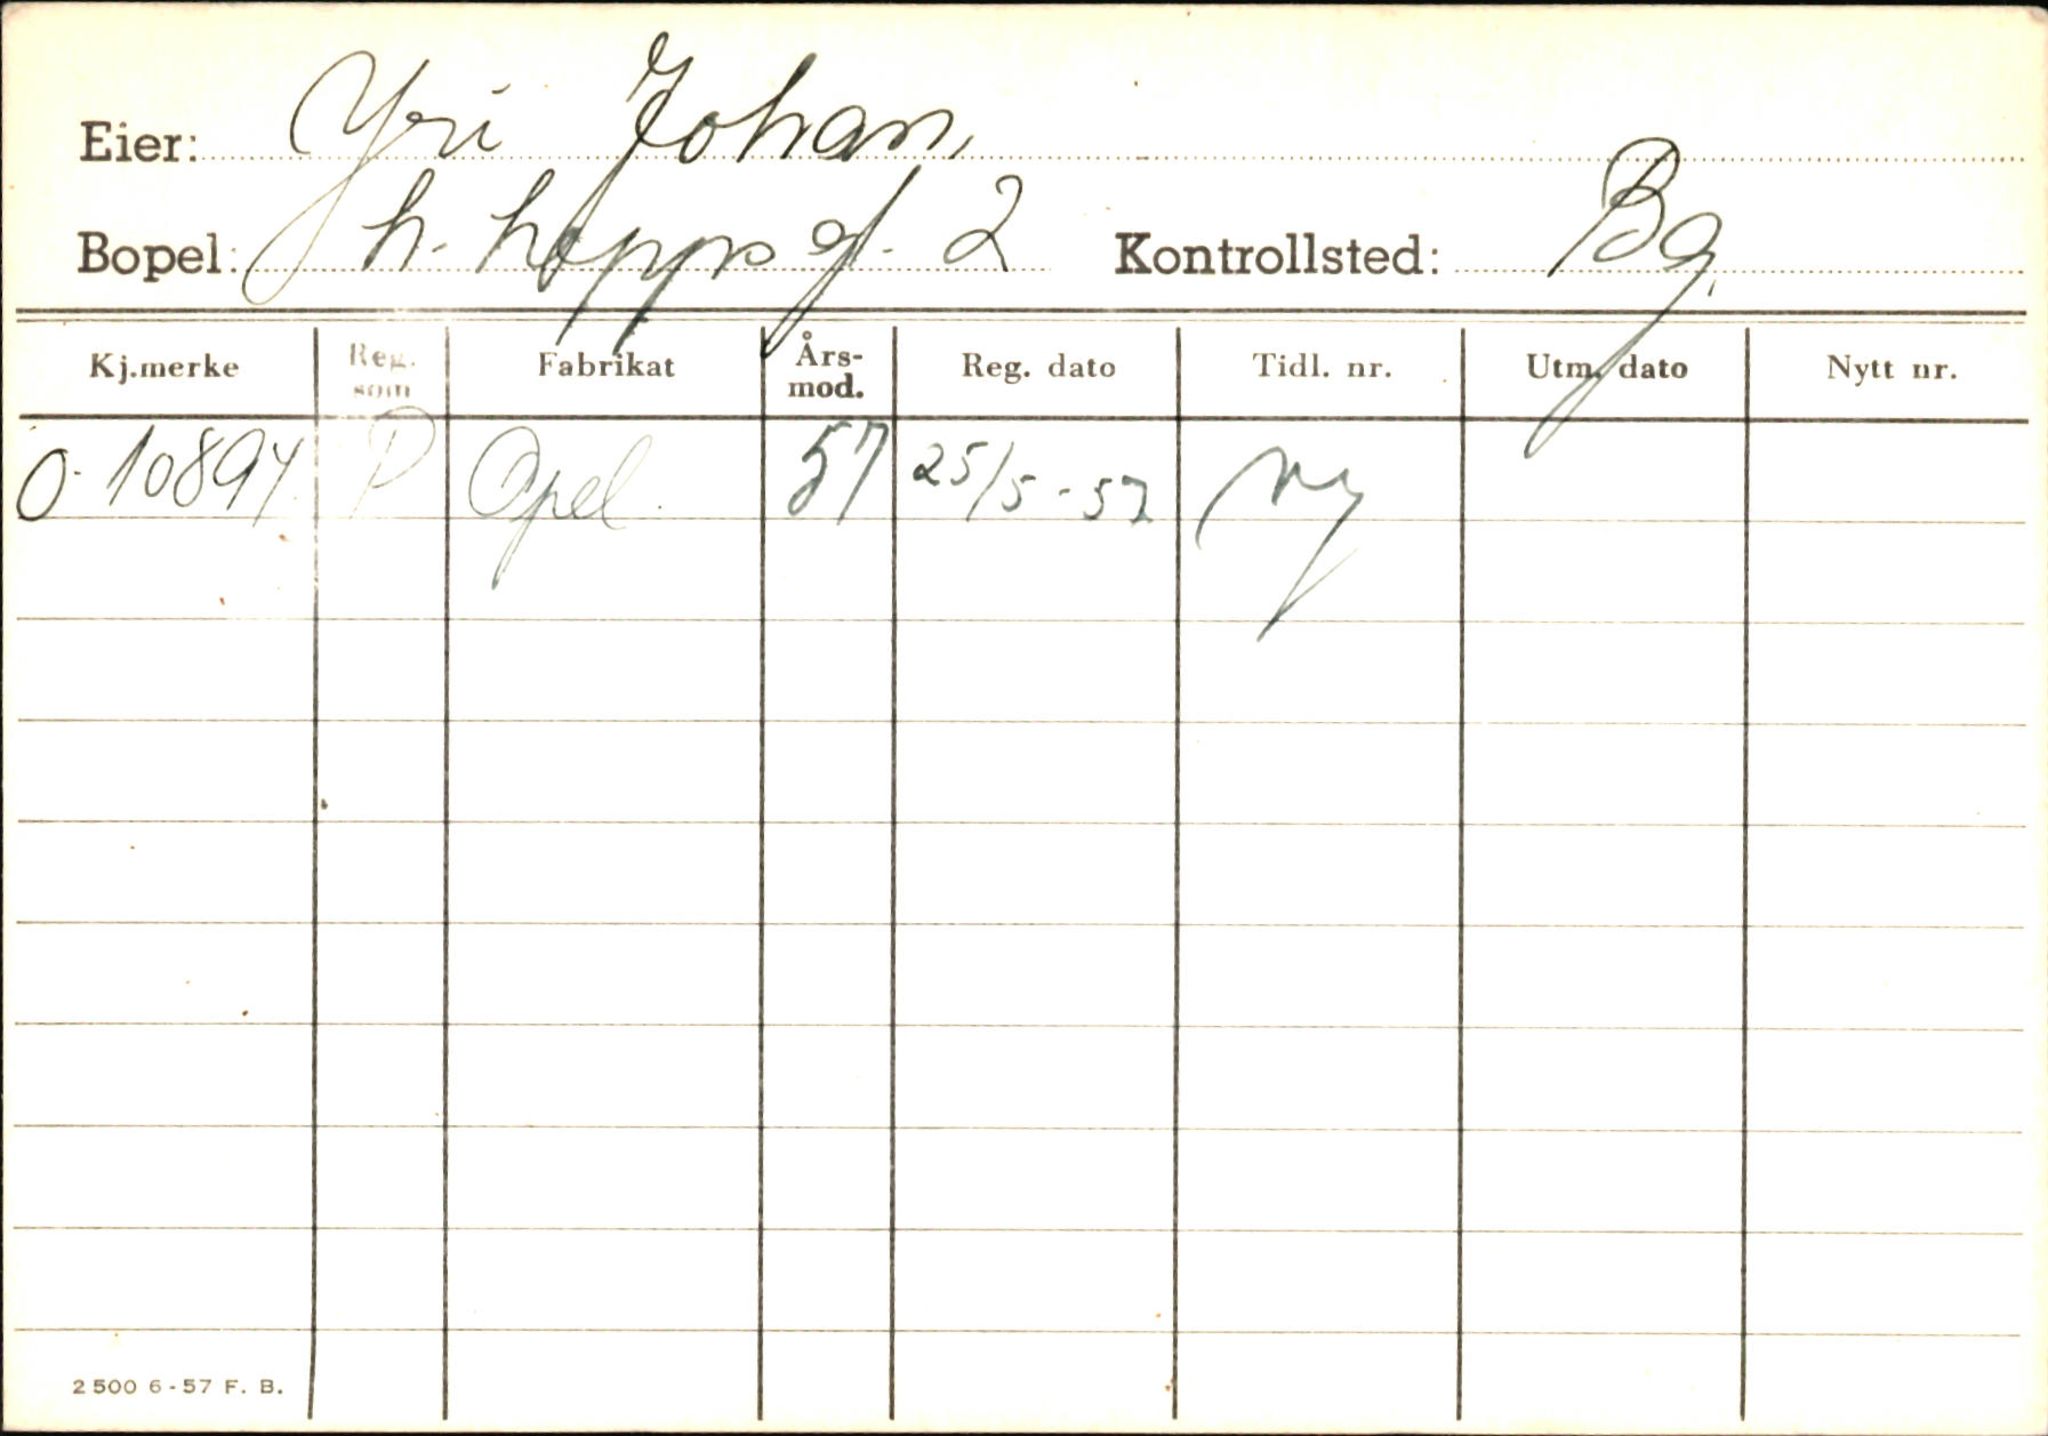 Eier: Yri Johan,
Bopel: h. hopps gt. 2 Kontrollsted: Bg.
Kj.merke Reg. som Fabrikat Års-mod. Reg. dato Tidl. nr. Utm. dato Nytt nr.
O-10894 P Opel 57 25/5-57 ny
2500 6-57 F. B.